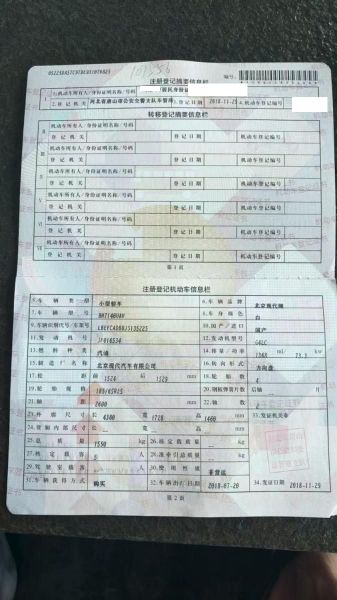 注册登记摘要信息栏
编号:
1.机动车所有人/身份证明名称/号码
居民身份证
2.登记机关 河北省唐山市公安交警支队车管所 3.登记日期 2018-11-29 4.机动车登记编号
转移登记摘要信息栏
机动车所有人/身份证明名称/号码
登记机关 登记日期 机动车登记编号
机动车所有人/身份证明名称/号码
登记机关 登记日期 机动车登记编号
机动车所有人/身份证明名称/号码
登记机关 登记日期 机动车登记编号
机动车所有人/身份证明名称/号码
登记机关 登记日期 机动车登记编号
机动车所有人/身份证明名称/号码
登记机关 登记日期 机动车登记编号
机动车所有人/身份证明名称/号码
登记机关 登记日期 机动车登记编号
第1页
注册登记机动车信息栏
5.车辆类型 小型轿车 6.车辆品牌 北京现代牌
7.车辆型号 8.车身颜色 白
9.车辆识别代号/车架号 10.国产/进口 国产
11.发动机号 12.发动机型号 G4LC
13.燃料种类 汽油 14.排量/功率 ml kw
15.制造厂名称 北京现代汽车有限公司 16.转向形式 方向盘
17.轮距 前 1524 后 1529 mm 18.轮胎数 4
19.轮胎规格 185/65R15 20.钢板弹簧片数 后轴 -- 片
21.轴距 2600 mm 22.轴数 2
23.外廓尺寸 长 4380 宽 1728 高 1460 mm 33.发证机关章
24.货厢内部尺寸 长 -- 宽 -- 高 -- mm
25.总质量 1550 kg 26.核定载质量 -- kg
27.核定载客 5 人 28.准牵引总质量 -- kg
29.驾驶室载客 -- 人 30.使用性质 非营运
31.车辆获得方式 购买 32.车辆出厂日期 2018-07-20 34.发证日期 2018-11-29
第2页